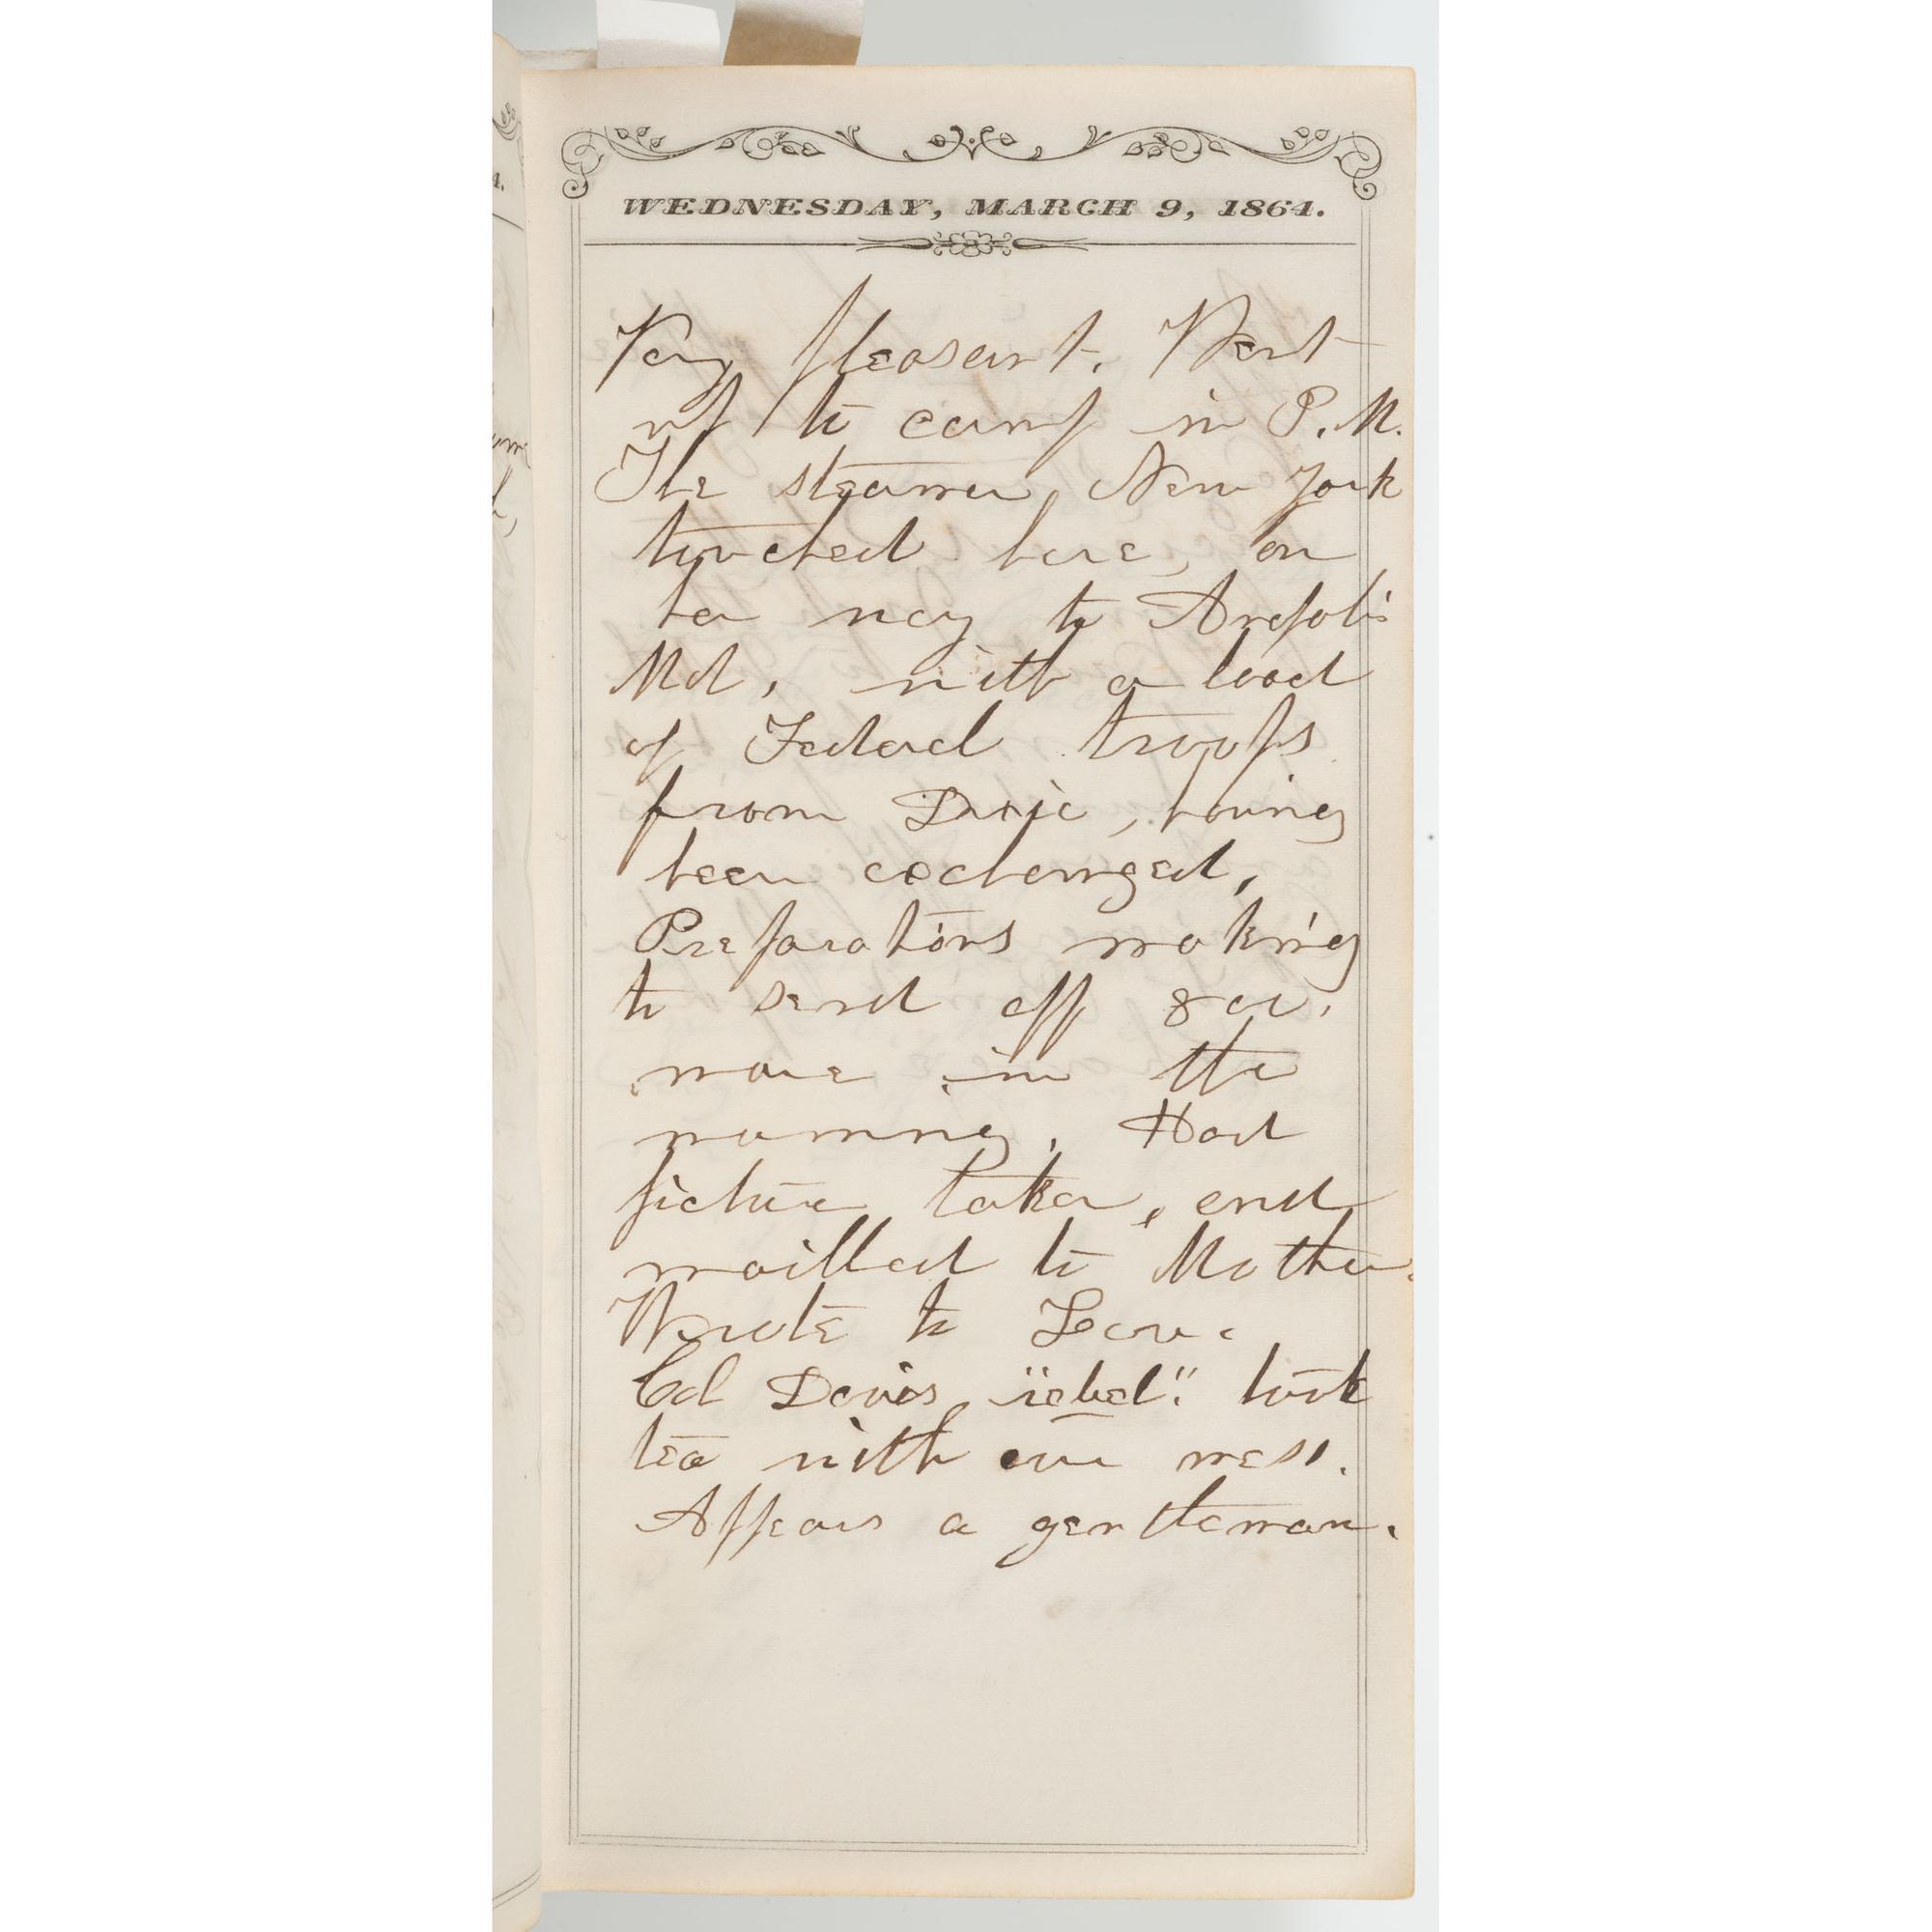 WEDNESDAY, MARCH 9, 1864.
Very pleasant. Went
up to camp in P.M.
The steamer, New York
touched here, on
her way to Anapolis
Md, with a load
of Federal troops
from Dixie, having
been exchanged,
Preparations making
to send off 800,
more in the
morning. Had
picture taken, and
mailled to Mother.
Wrote to
Col Davis "rebel" took
tea with our mess.
Appears a gentleman.